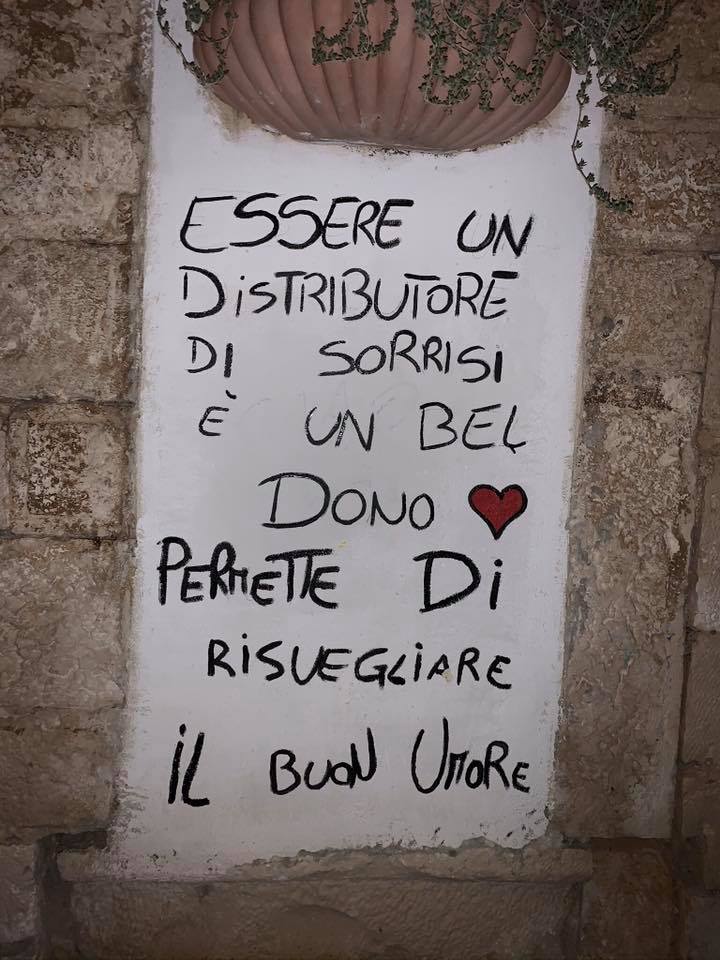 ESSERE UN
DiSTRIBUTORE
DI SORRISI
È UN BEL
DONO ❤
PERMETTE Di
RiSVEGLiARE
iL BUON UMORE